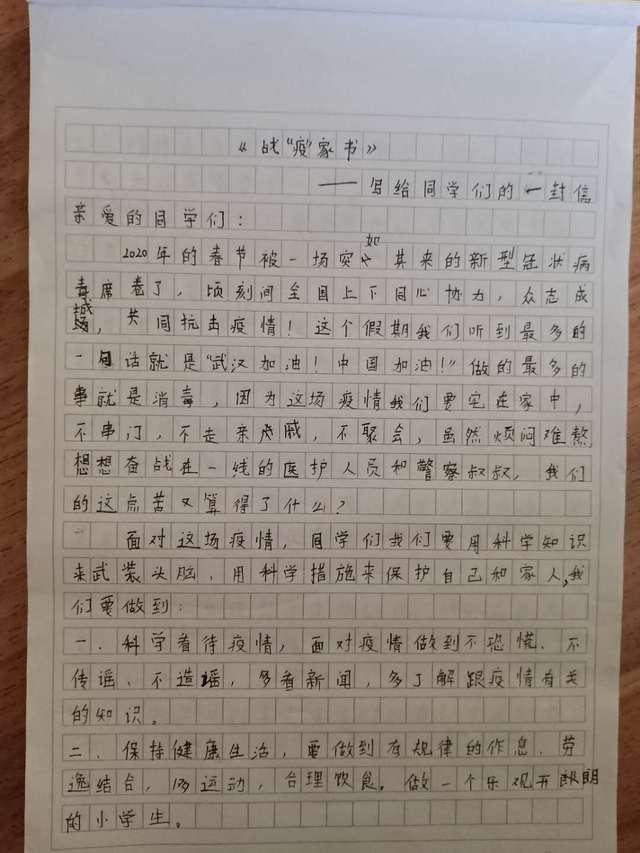 《战“疫”家书》
——写给同学们的一封信
亲爱的同学们：
2020年的春节被一场突如其来的新型冠状病
毒席卷了，顷刻间全国上下同心协力，众志成
城，共同抗击疫情！这个假期我们听到最多的
一句话就是“武汉加油！中国加油！”做的最多的
事就是消毒，因为这场疫情我们要宅在家中，
不串门，不走亲戚，不聚会，虽然烦闷难熬
想想奋战在一线的医护人员和警察叔叔，我们
的这点苦又算得了什么？
面对这场疫情，同学们我们要用科学知识
来武装头脑，用科学措施来保护自己和家人，我
们要做到：
一．科学看待疫情，面对疫情做到不恐慌、不
传谣、不造谣，多看新闻，多了解跟疫情有关
的知识。
二．保持健康生活，要做到有规律的作息、劳
逸结合，运动，合理饮食。做一个乐观开朗
的小学生。